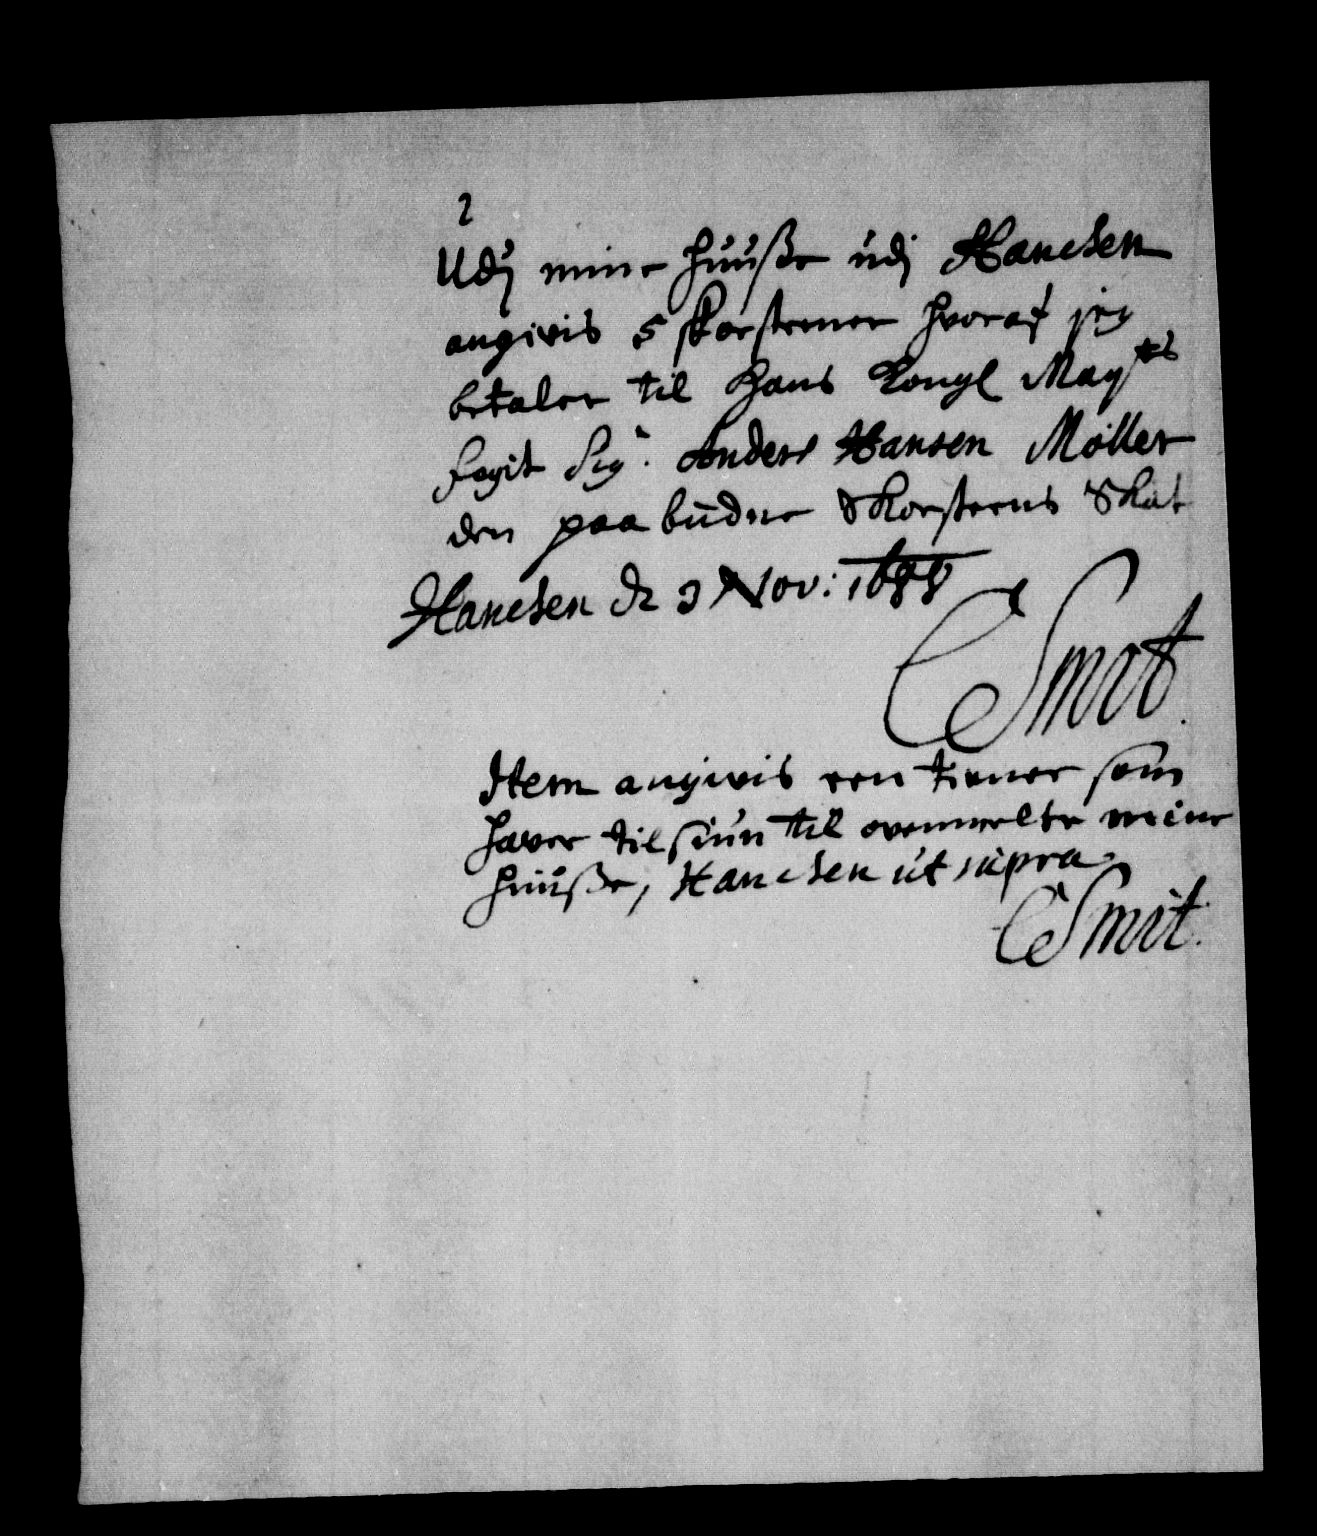 2
Udj mine huuße udj Hanesen
angivis 5 skorstener hvoraf jeg
betaler til Hans Kongl Mayts
fogit Sigr. Anders Hansen Möller
den paabudne Skorsteens Skat
Hanesen d 3 Nov: 1688
CSmit.
Item angivis een tiener som
haver tilsiun til ovenmelte mine
huuße, Hanesen ut supra
CSmit.